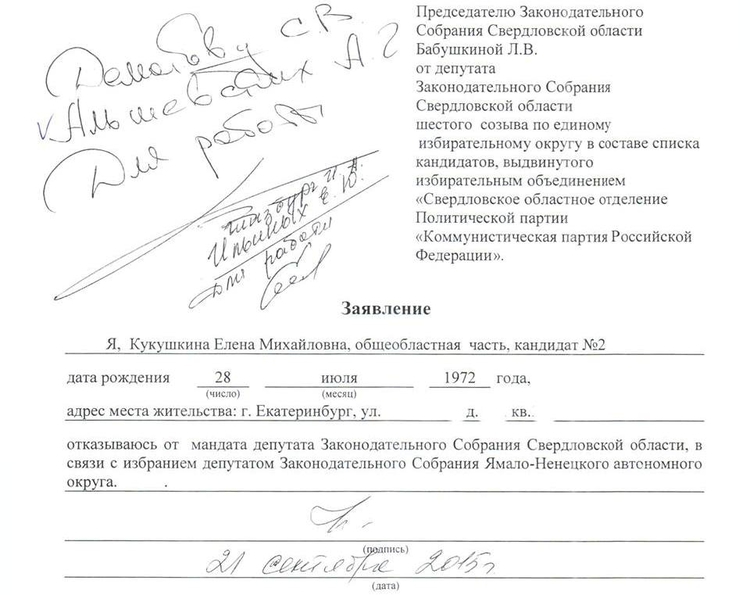 Председателю Законодательного
Собрания Свердловской области
Бабушкиной Л.В.
от депутата
Законодательного Собрания
Свердловской области
шестого созыва по единому
избирательному округу в составе списка
кандидатов, выдвинутого
избирательным объединением
«Свердловское областное отделение
Политической партии
«Коммунистическая партия Российской
Федерации».
С.В.
А.Г
Для работы
Ильиных Е.Ю.
Для работы
Заявление
Я, Кукушкина Елена Михайловна, общеобластная часть, кандидат №2
дата рождения 28 июля 1972 года,
(число) (месяц)
адрес места жительства: г. Екатеринбург, ул. д. кв.
отказываюсь от мандата депутата Законодательного Собрания Свердловской области, в
связи с избранием депутатом Законодательного Собрания Ямало-Ненецкого автономного
округа. .
(подпись)
21 сентября 2015г
(дата)